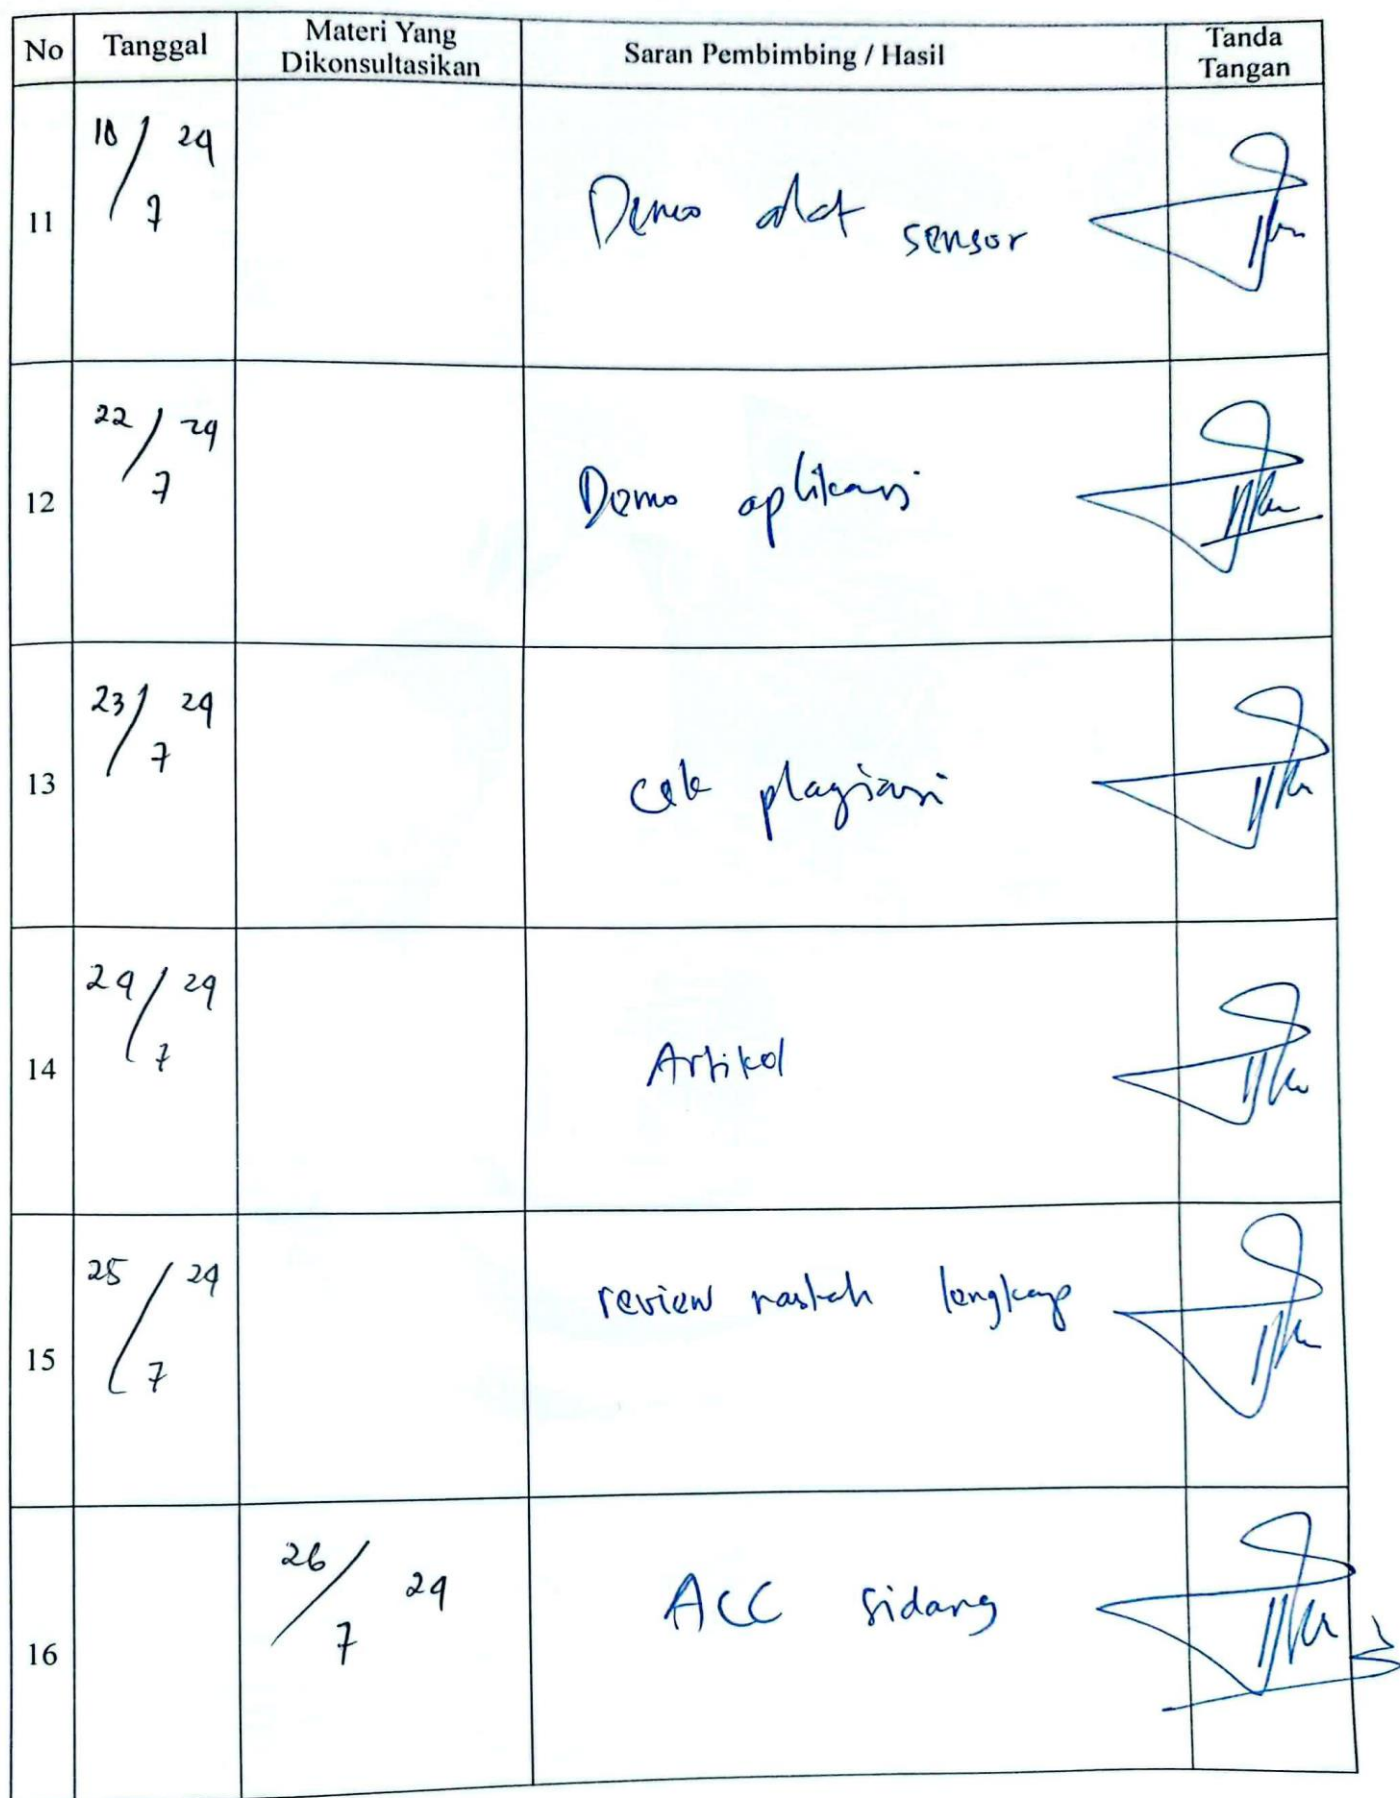 No Tanggal Materi Yang Dikonsultasikan Saran Pembimbing / Hasil Tanda Tangan
11 18/7 24 Demo alat sensor
12 22/7 24 Demo aplikasi
13 23/7 24 cek plagiasi
14 24/7 24 Artikel
15 25/7 24 review naskah lengkap
16 26/7 24 ACC sidang